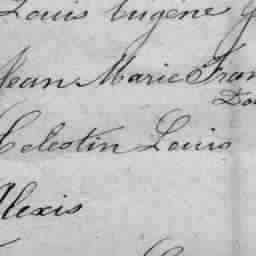 Louis Eugène
Jean Marie Fran
Do
Celestin Louis
Alexis